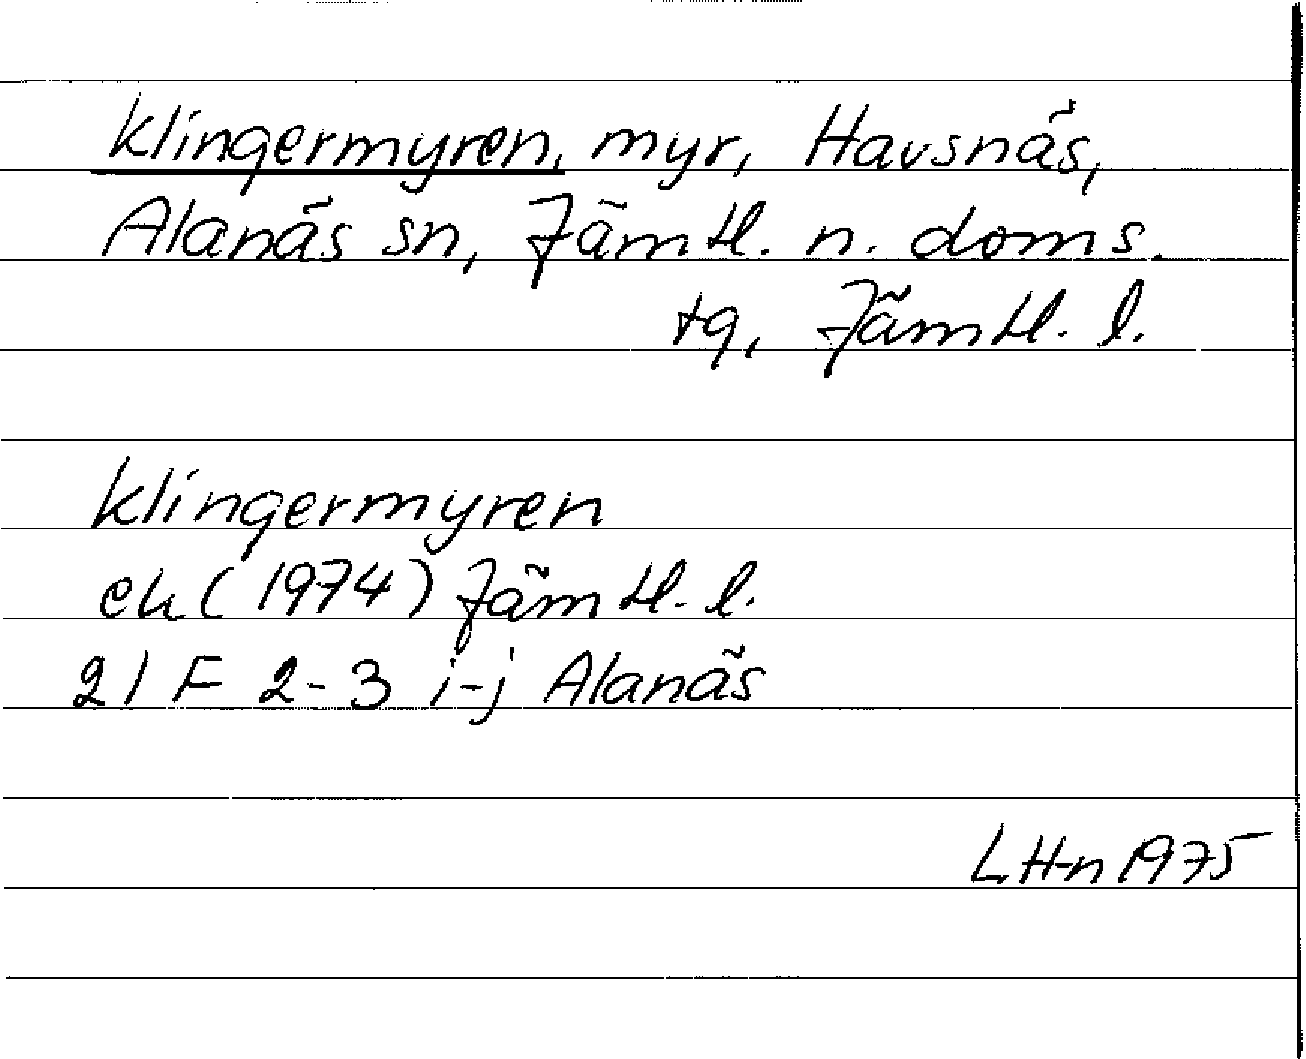 Klingermyren, myr, Havsnäs,
Alanäs sn, Jämtl. n. doms.
tg, Jämtl. l.
Klingermyren
ek (1974) Jämtl. l.
21 F 2-3 i-j Alanäs
LH-n 1975